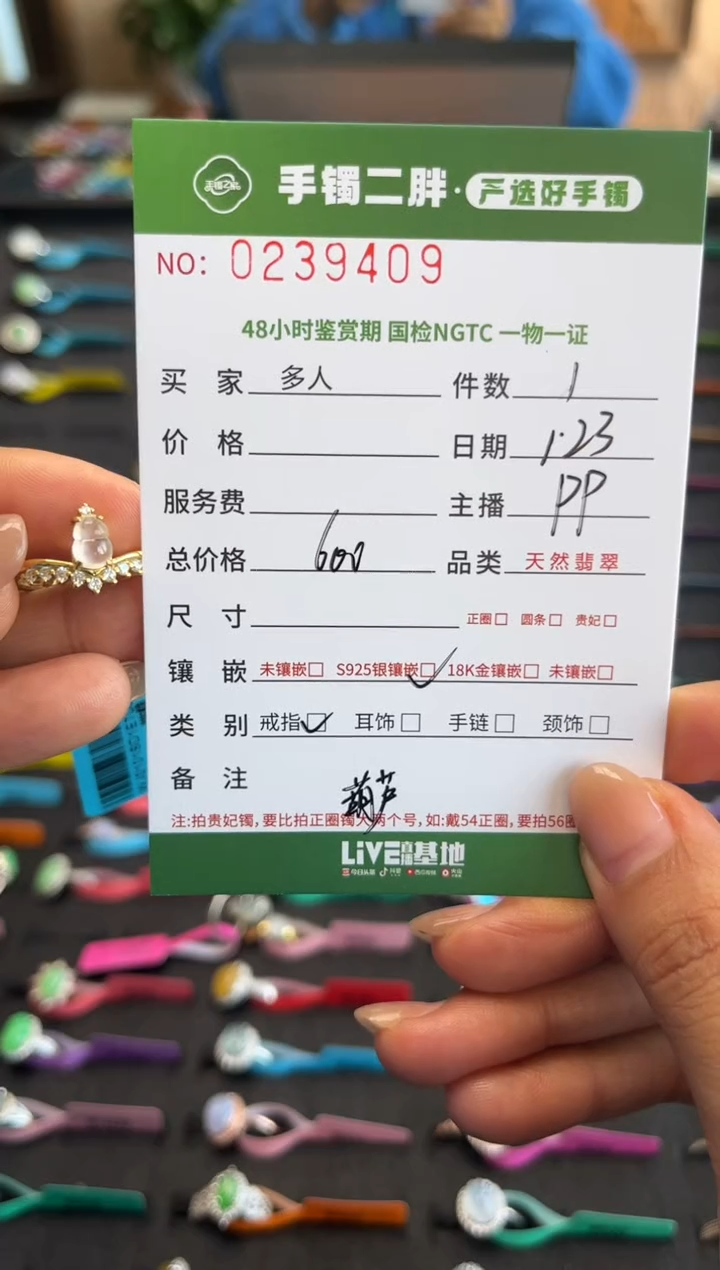 手镯二胖·严选好手镯
NO: 0239409
48小时鉴赏期 国检NGTC 一物一证
买 家 多人 件数 1
价 格 日期 1.23
服务费 主播 PP
总价格 600 品类 天然翡翠
尺 寸 正圈□ 圆条□ 贵妃□
镶 嵌 未镶嵌□ S925银镶嵌☑ 18K金镶嵌□ 未镶嵌□
类 别 戒指☑ 耳饰□ 手链□ 颈饰□
备 注 葫芦
注:拍贵妃镯,要比拍正圈镯大两个号,如:戴54正圈,要拍56
LiVE直播基地
今日头条 抖音 西瓜视频 火山